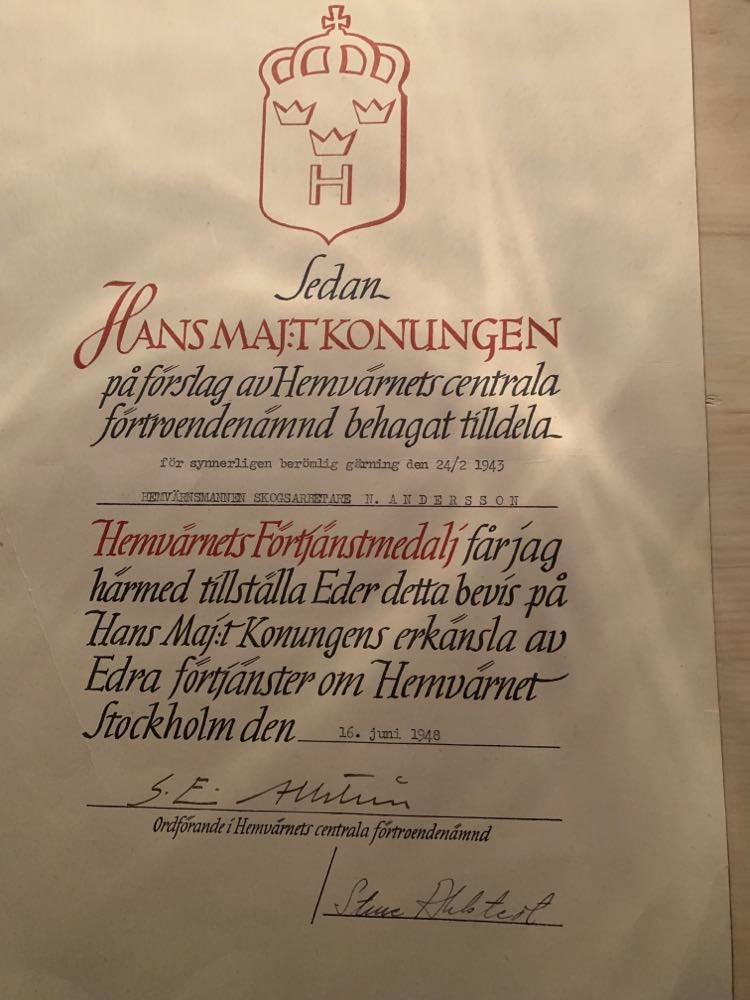 H
Sedan
HANS MAJ:T KONUNGEN
på förslag av Hemvärnets centrala
förtroendenämnd behagat tilldela
för synnerligen berömlig gärning den 24/2 1943
HEMVÄRNSMANNEN SKOGSARBETARE N. ANDERSSON
Hemvärnets Förtjänstmedalj får jag
härmed tillställa Eder detta bevis på
Hans Maj:t Konungens erkänsla av
Edra förtjänster om Hemvärnet
Stockholm den 16. juni 1948
S. E.
Ordförande i Hemvärnets centrala förtroendenämnd
Sture Ahlstedt